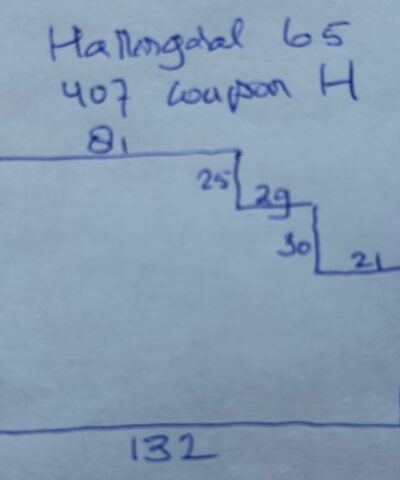 Hallingdal 65
407 coupon H
81
25
29
30
21
132